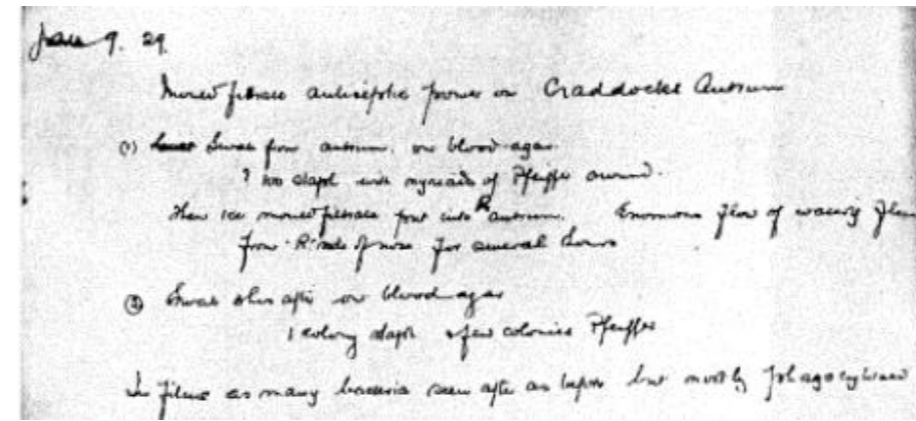 Jan 9. 29.
Mould filtrate antiseptic power on Craddocks Antrum
(1) Swab from antrum. on blood agar
? 100 staph with myriads of Pfeiffer around.
Then 1cc mould filtrate put into R antrum. Enormous flow of watery
from R side of nose for several hours
(2) Swab 3hrs after on blood agar
1 colony staph a few colonies Pfeiffer
In films as many bacteria seen after as before but mostly phagocytosed